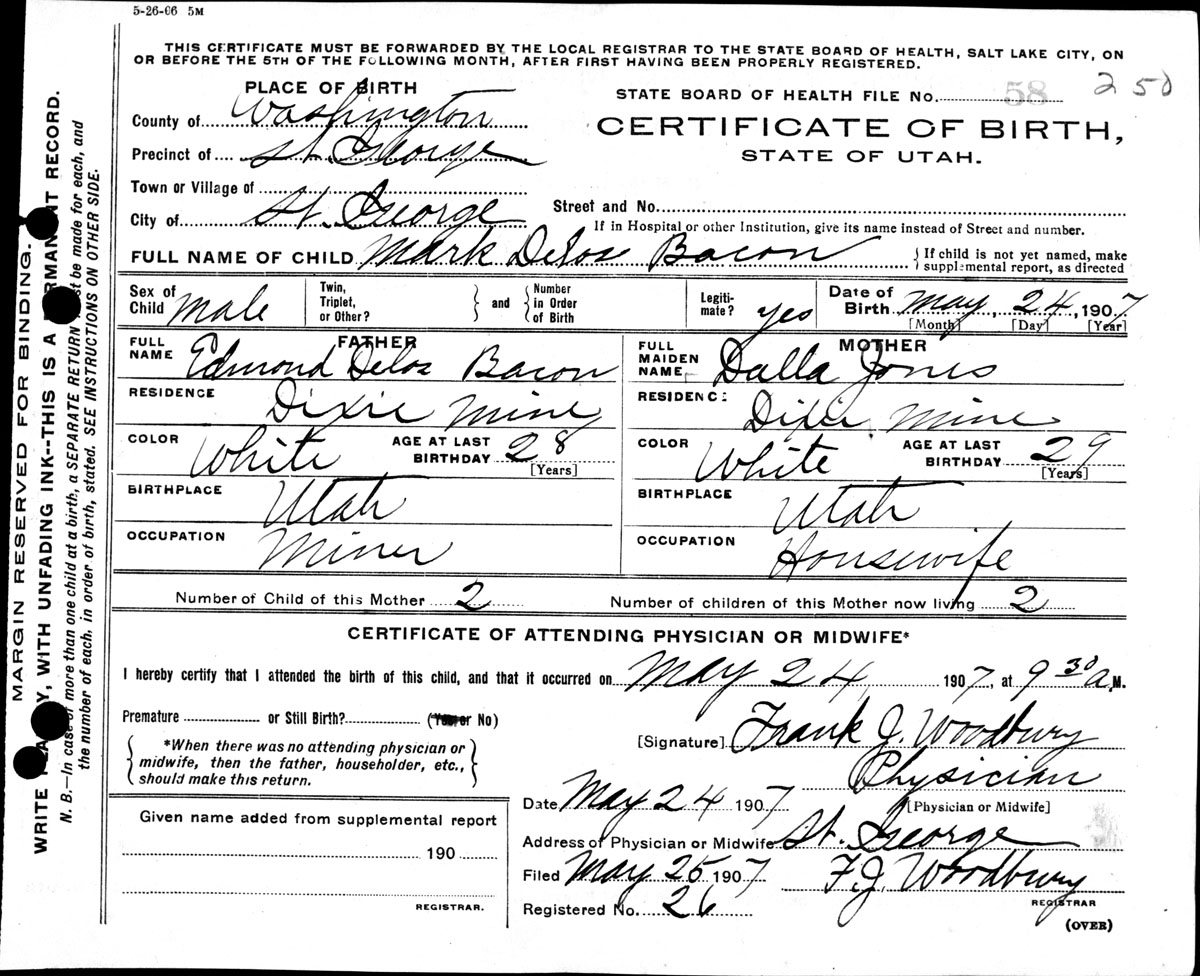 5-26-06 5M
THIS CERTIFICATE MUST BE FORWARDED BY THE LOCAL REGISTRAR TO THE STATE BOARD OF HEALTH, SALT LAKE CITY, ON
OR BEFORE THE 5TH OF THE FOLLOWING MONTH, AFTER FIRST HAVING BEEN PROPERLY REGISTERED.
PLACE OF BIRTH
STATE BOARD OF HEALTH FILE No. 58 250
County of Washington
CERTIFICATE OF BIRTH,
STATE OF UTAH.
Precinct of St. George
Town or Village of
City of St. George
Street and No.
If in Hospital or other Institution, give its name instead of Street and number.
FULL NAME OF CHILD Mark Delos Bacon
{ If child is not yet named, make
supplemental report, as directed
Sex of Child Male
Twin, Triplet, or Other? } and { Number in Order of Birth
Legiti-mate? yes
Date of Birth May 24, 1907
[Month] [Day] [Year]
FATHER
FULL NAME Edmond Delos Bacon
RESIDENCE Dixie Mine
COLOR White AGE AT LAST BIRTHDAY 28
[Years]
BIRTHPLACE Utah
OCCUPATION Miner
MOTHER
FULL MAIDEN NAME Dalla Jones
RESIDENCE Dixie Mine
COLOR White AGE AT LAST BIRTHDAY 29
[Years]
BIRTHPLACE Utah
OCCUPATION Housewife
Number of Child of this Mother 2 Number of children of this Mother now living 2
CERTIFICATE OF ATTENDING PHYSICIAN OR MIDWIFE*
I hereby certify that I attended the birth of this child, and that it occurred on May 24 1907, at 9 30 a.M.
Premature or Still Birth? (Yes or No)
{ *When there was no attending physician or
midwife, then the father, householder, etc.,
should make this return. }
[Signature] Frank J. Woodbury
Physician
[Physician or Midwife]
Date May 24 1907
Address of Physician or Midwife St. George
Filed May 25 1907 F.J. Woodbury
REGISTRAR
Registered No. 26
(OVER)
Given name added from supplemental report
190
REGISTRAR.
MARGIN RESERVED FOR BINDING.
WRITE PLAINLY, WITH UNFADING INK--THIS IS A PERMANENT RECORD.
N. B.—In case of more than one child at a birth, a SEPARATE RETURN must be made for each, and
the number of each, in order of birth, stated. SEE INSTRUCTIONS ON OTHER SIDE.